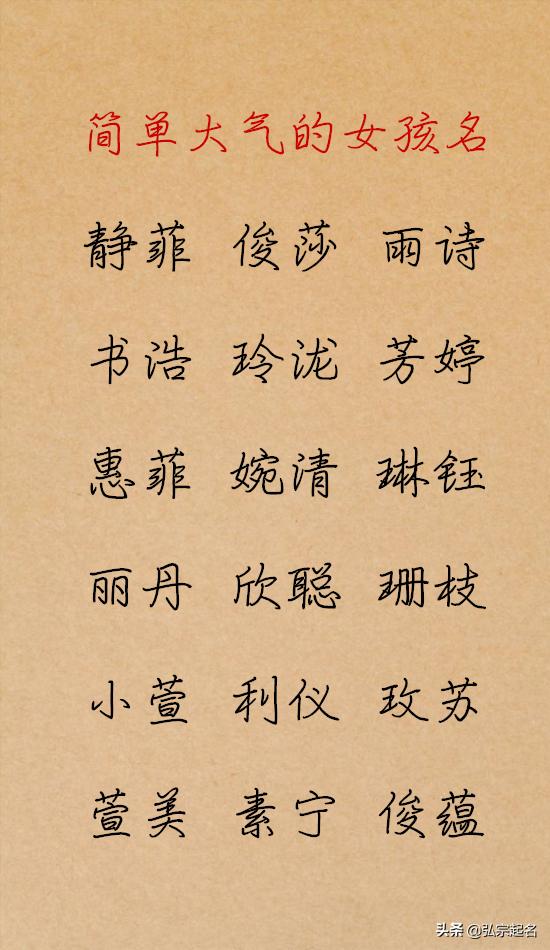 简单大气的女孩名
静菲 俊莎 雨诗
书浩 玲泷 芳婷
惠菲 婉清 琳钰
丽丹 欣聪 珊枝
小萱 利仪 玫苏
萱美 素宁 俊蕴
头条 @弘宗起名